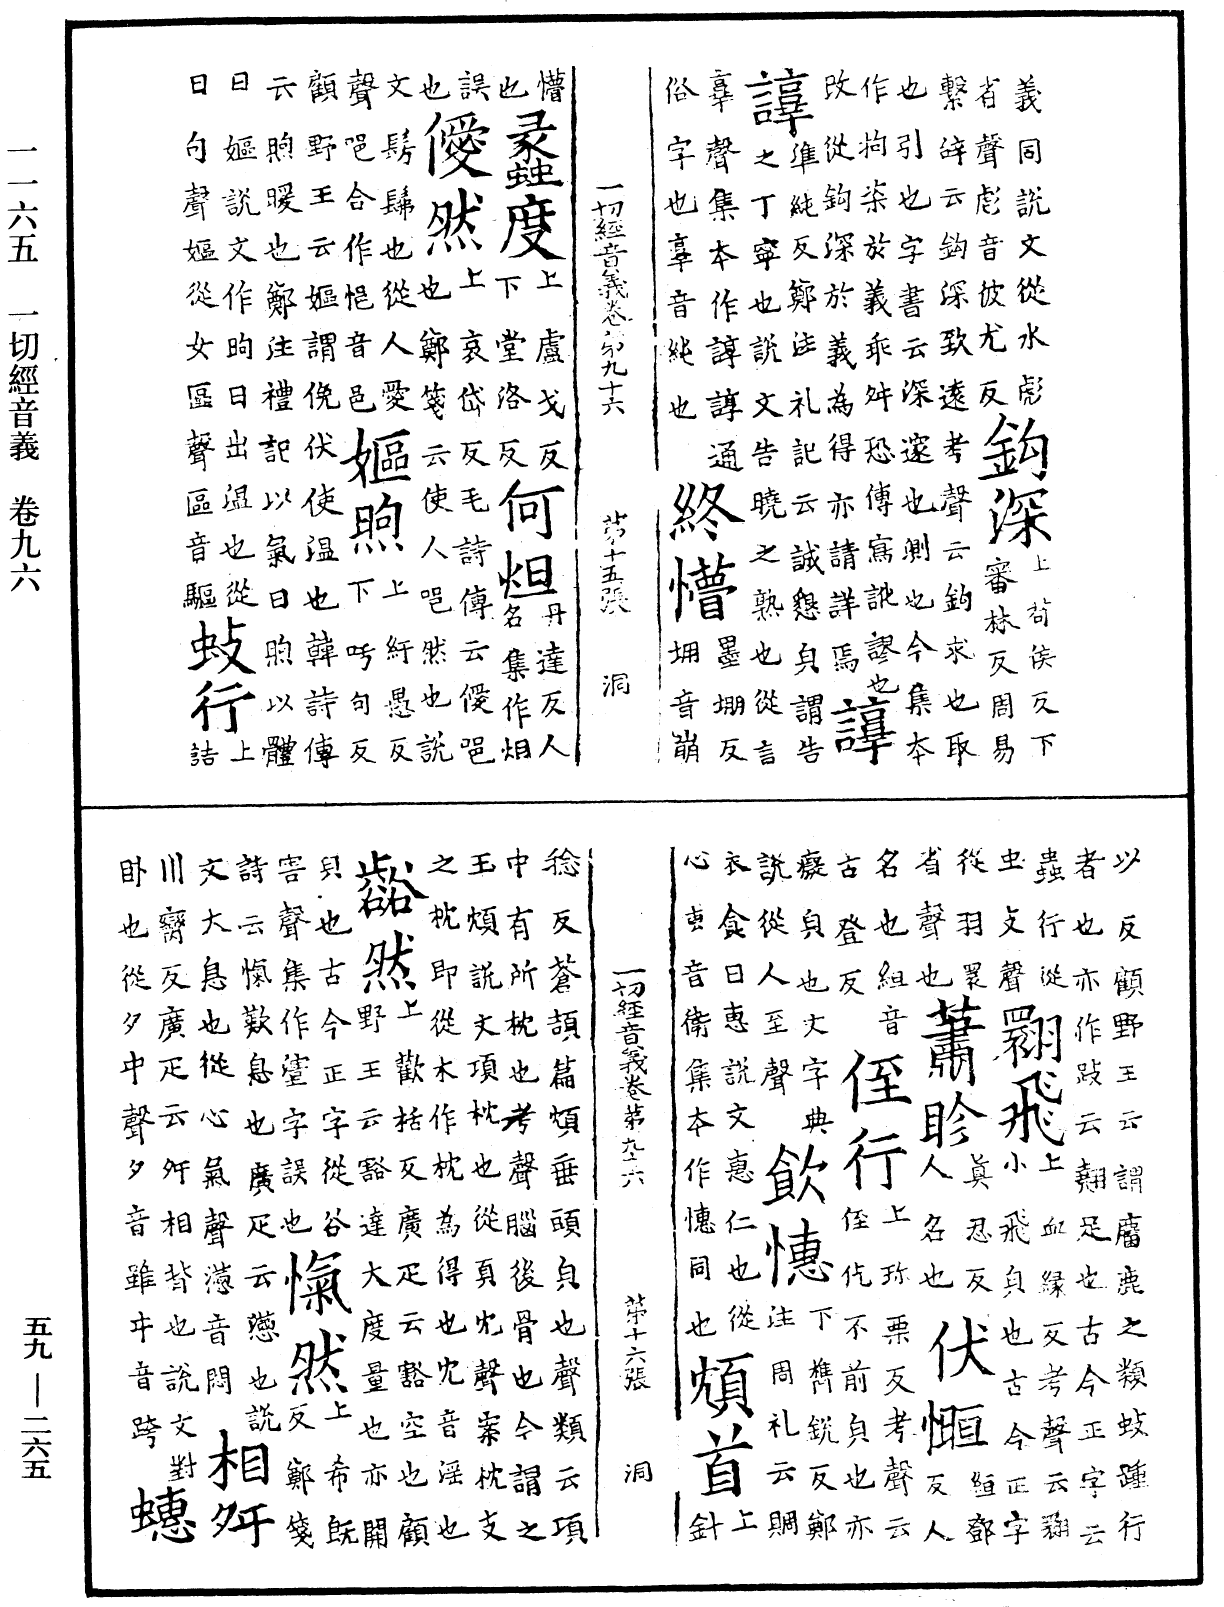 義同說文從水彪
省聲彪音彼尤反鈎深上苟侯反下
審林反周易
繫辭云鈎深致遠考聲云鈎求也取
也引也字書云深邃也測也今集本
作柒於義乖舛恐傳寫訛謬也
改從鈎深於義為得亦請詳焉諄
諄準純反鄭注礼記云誠懇皃謂告
之丁寧也說文告曉之熟也從言
𦎫聲集本作諄諄通
俗字也𦎫音純也終懵墨堋反
堋音崩
一切經音義卷第九十六 第十五張 洞
懵也蠡度上盧戈反
下堂洛反何妲丹達反人
名集作炟
誤也僾然上哀岱反毛詩傳云僾唈
也鄭箋云使人唈然也說
文髣髴也從人愛
聲唈合作悒音邑嫗煦上紆愚反
下吁句反
顧野王云嫗謂俛伏使溫也韓詩傳
云煦暖也鄭注禮記以氣曰煦以體
曰嫗說文作昫日出溫也從
日句聲嫗從女區聲區音驅蚑行上
詰
以反顧野王云謂麕鹿之類蚑踵行
者也亦作跂云翹足也古今正字云
蟲行從
虫支聲翾飛上血緣反考聲云翾
小飛皃也古今正字
從羽睘
省聲也蕭眕真忍反
人名也伏恒絙鄧
反人
名也組音
古登反侄行上珎栗反考聲云
侄仡不前皃也亦
癡皃也文字典
說從人至聲飲憓下攜銳反鄭
注周礼云賙
衣食曰惠說文惠仁也從
心叀音衛集本作憓同也䪴首上
針
一切經音義卷第九十六 第十六張 洞
稔反蒼頡篇䪴垂頭皃也聲類云項
中有所枕也考聲腦後骨也今謂之
玉䪴說文項枕也從頁冘聲案枕支
之枕即從木作枕為得也冘音淫也
豁然上歡括反廣疋云豁空也顧
野王云豁達大度量也亦開
皃也古今正字從谷
害聲集作壑字誤也愾然上希旣
反鄭箋
詩云愾歎息也廣疋云懣也說
文大息也從心氣聲懣音悶相舛
川臠反廣疋云舛相背也說文對
卧也從夕㐄聲夕音雖㐄音跨蟪
一一六五 一切經音義 卷九六
五九——二六五